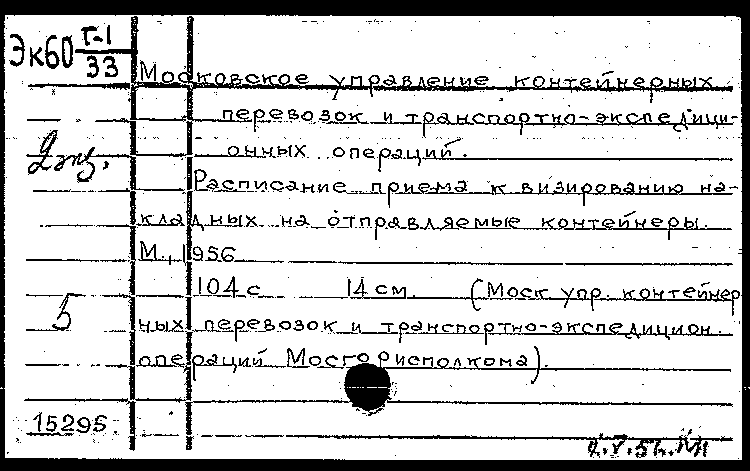 Эк60 Г-1
33
Московское управление контейнерных
перевозок и транспортно-экспедици-
онных операций.
2 экз.
Расписание приема к визированию на-
кладных на отправляемые контейнеры.
М., 1956
104 с 14 см. (Моск упр. контейнер
5
ных перевозок и транспортно-экспедицион.
операций Мосгорисполкома).
15295.